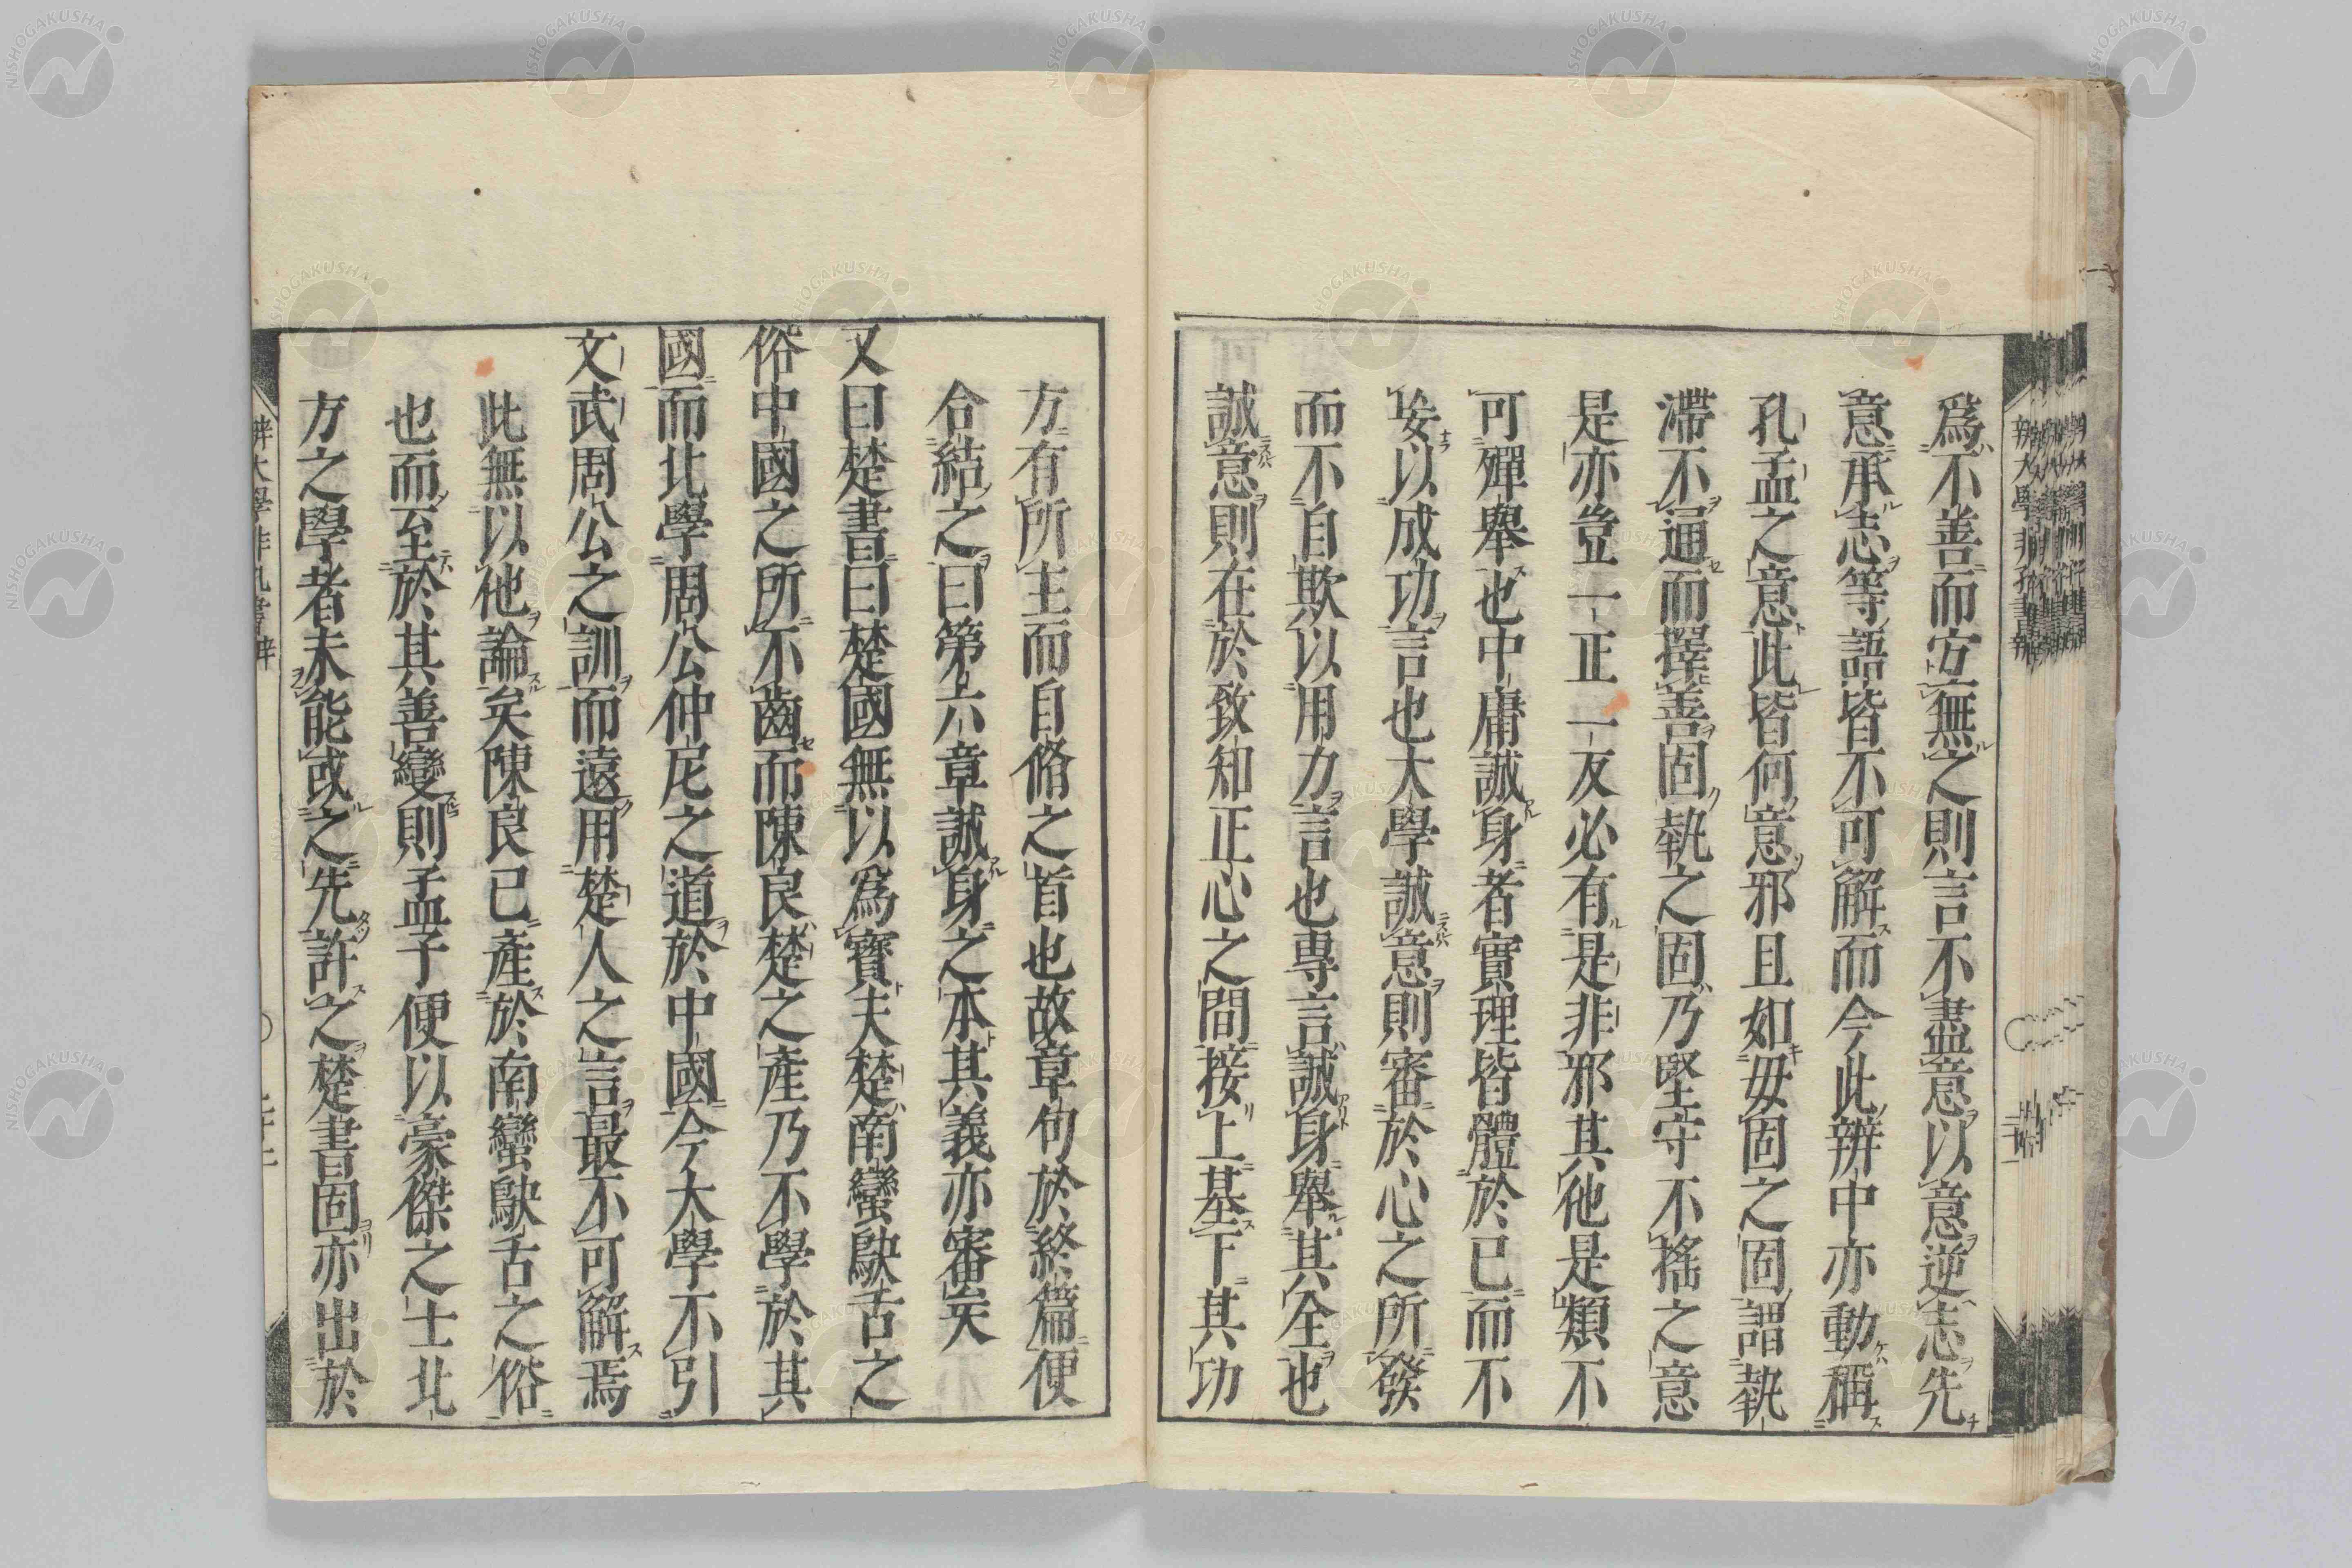 爲不善而安無之則言不盡意以意逆志先
意承志等語皆不可解而今此辨中亦動稱
孔孟之意此皆何意邪且如毋固之固謂執
滯不通而擇善固執之固乃堅守不搖之意
是亦豈一正一反必有是非邪其他是類不
可殫舉也中庸誠身者實理皆體於己而不
妄以成功言也大學誠意則審於心之所發
而不自欺以用力言也專言誠身舉其全也
誠意則在於致知正心之間接上基下其功
方有所主而自脩之首也故章句於終篇便
合結之曰第六章誠身之本其義亦審矣
又曰楚書曰楚國無以爲寶夫楚南蠻鴃舌之
俗中國之所不齒而陳良楚之產乃不學於其
國而北學周公仲尼之道於中國今大學不引
文武周公之訓而遠用楚人之言最不可解焉
此無以他論矣陳良已產於南蠻鴃舌之俗
也而至於其善變則孟子便以豪傑之士北
方之學者未能或之先許之楚書固亦出於
辨大學非孔書辨
二十二
辨大學非孔書辨
NISHOGAKUSHA